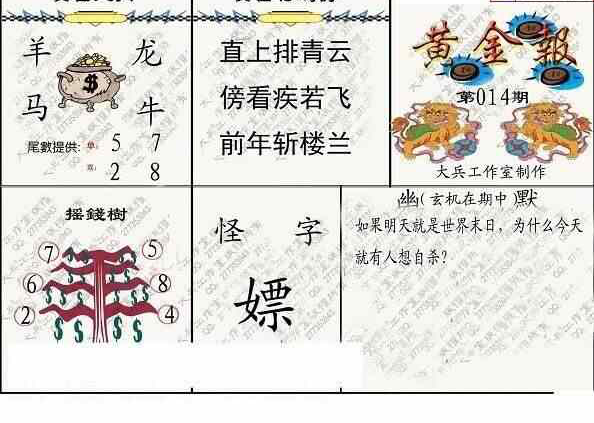 羊 龙
马 牛
$
尾數提供: 单: 5 7
双: 2 8
直上排青云
傍看疾若飞
前年斩楼兰
黄金報
第014期
大兵工作室制作
摇錢樹
7 5
6 8
2 4
$ $ $ $ $ $
$ $ $ $
怪 字
嫖
幽(玄机在期中)默
如果明天就是世界末日，为什么今天
就有人想自杀？